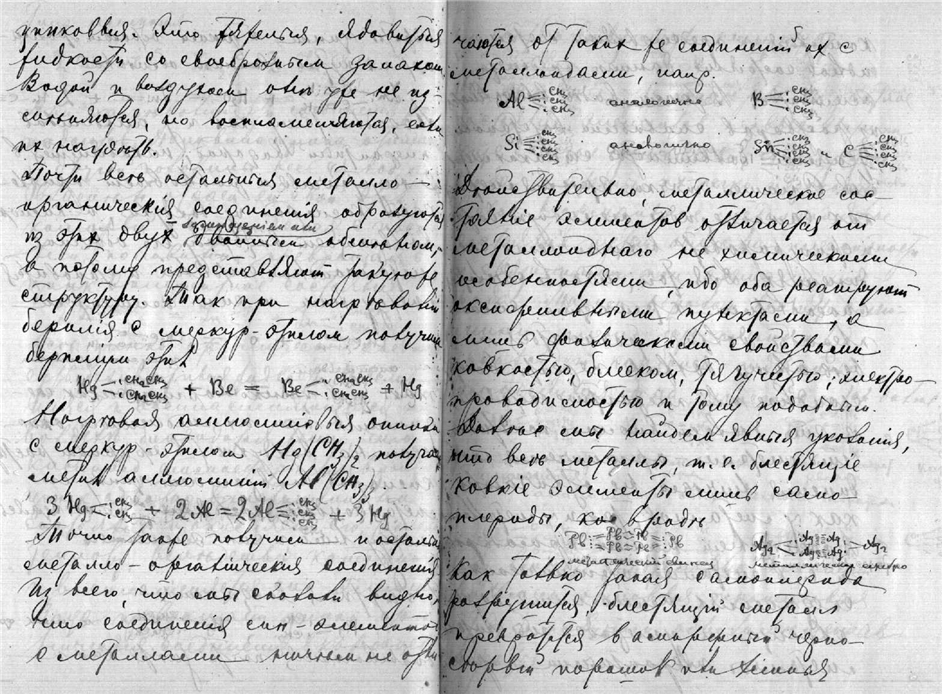 цинковыя. Это тяжелыя, ядовитыя
жидкости со своеобразным запахом
Водой и воздухом они уже не
но воспламеняются, если
их нагреть.
Почти все остальныя металло-
органическия соединения образуются
из этих двух обменом,
а потому представляют такую же
структуру. Так при нагревании
берилия с меркур-этилом получим
бериллий этил
Hg CH₂CH₃ CH₂CH₃ + Be = Be CH₂CH₃ CH₂CH₃ + Hg
Нагревая алюминиевыя опилки
с меркур-этилом Hg(CH₃)₂ получим
метил алюминий Al(CH₃)₃
3Hg CH₃ CH₃ + 2Al = 2Al CH₃ CH₃ CH₃ + 3Hg
Точно также получим и остальныя
металло-органическия соединения
Из всего, что мы сказали видно,
что соединения син-элементов
с металлами ничем не отли
чаются от таких же соединений их с
металлоидами, напр.
Al CH₃ CH₃ CH₃ аналогично B CH₃ CH₃ CH₃
Si CH₃ CH₃ CH₃ CH₃ аналогично Sn CH₃ CH₃ CH₃ CH₃ и C CH₃ CH₃ CH₃ CH₃
Действительно, металлическое сос-
тояние элементов отличается от
металлоиднаго не химическими
особенностями, ибо оба реагируют
пунктами, а
лишь физическими свойствами
ковкостью, блеском, тягучестью, электро-
проводимостью и тому подобным.
Далее мы найдем явныя указания,
что все металлы, т.е. блестящие
ковкие элементы лишь само-
плероды, как вроде
Pb Pb Pb Pb Pb Pb Pb Pb Ag₂ Ag Ag Ag Ag Ag₂
металлический свинец металлическое серебро
Как только такая самоплерода
разрушится, блестящий металл
превратится в аморфный черно-
порошок или темныя